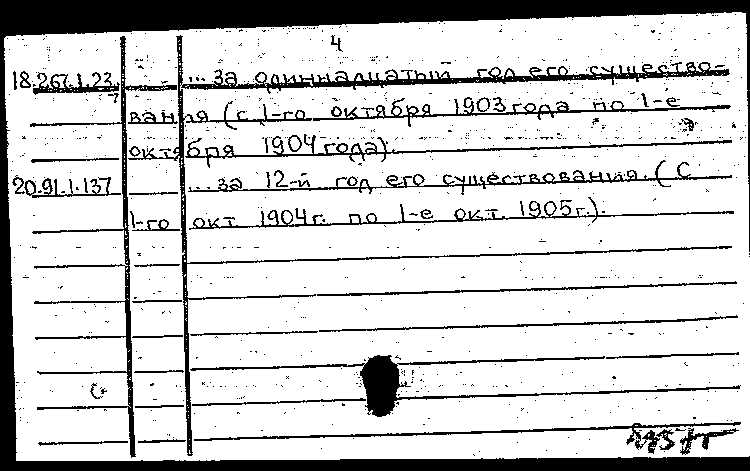 4
18.267.1.23 ... за одиннадцатый год его существо-
вания (с 1-го октября 1903 года по 1-е
октября 1904 года).
20.91.1.137 ... за 12-й год его существования. (С
1-го окт. 1904 г. по 1-е окт. 1905 г.).